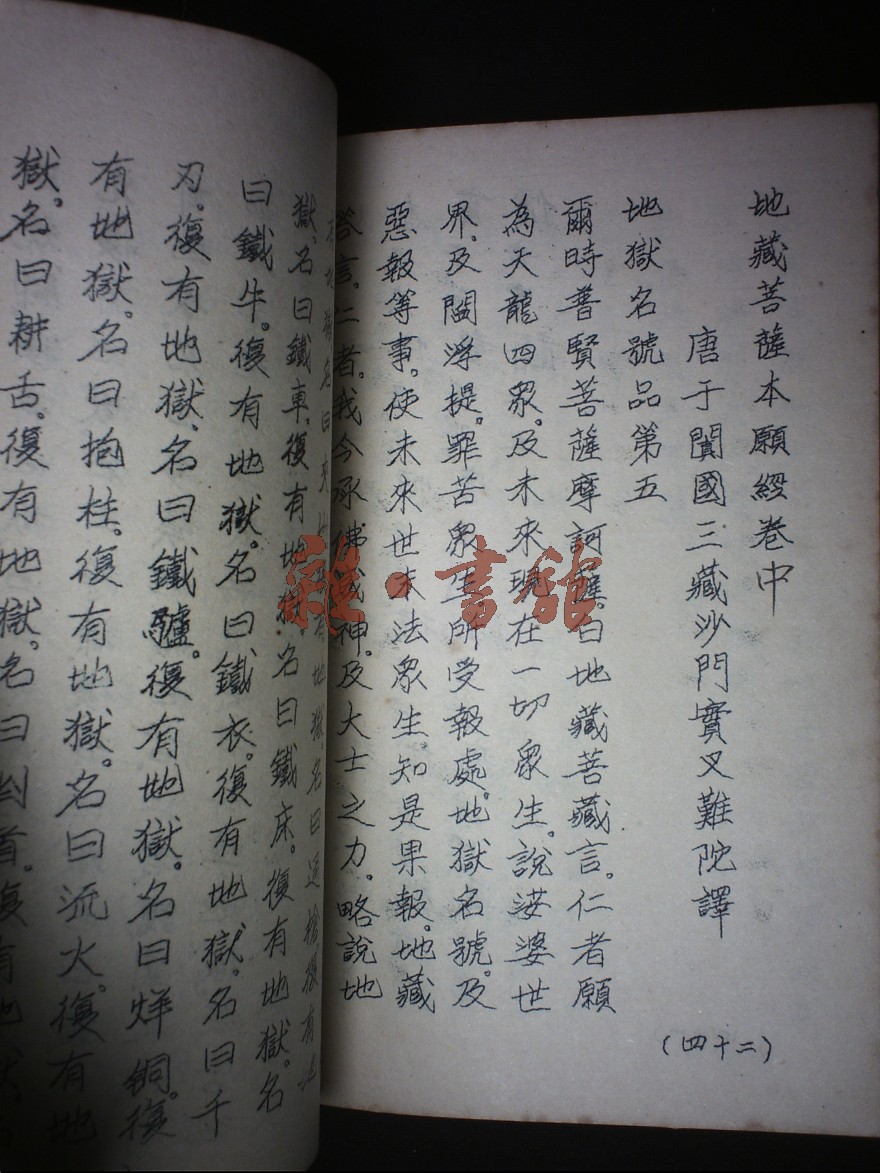 地藏菩薩本願經卷中
唐于闐國三藏沙門實叉難陀譯
地獄名號品第五
爾時普賢菩薩摩訶薩。白地藏菩藏言。仁者願
為天龍四眾。及未來現在一切眾生。說娑婆世
界。及閻浮提。罪苦眾生所受報處。地獄名號。及
惡報等事。使未來世末法眾生。知是果報。地藏
答言。仁者。我今承佛威神。及大士之力。略說地
(四十二)
名曰通槍復有地
獄。名曰鐵車。復有地獄。名曰鐵床。復有地獄。名
曰鐵牛。復有地獄。名曰鐵衣。復有地獄。名曰千
刃。復有地獄。名曰鐵驢。復有地獄。名曰烊銅。復
有地獄。名曰抱柱。復有地獄。名曰流火。復有地
獄。名曰耕舌。復有地獄。名曰剉首。復有地獄。
雜·書館